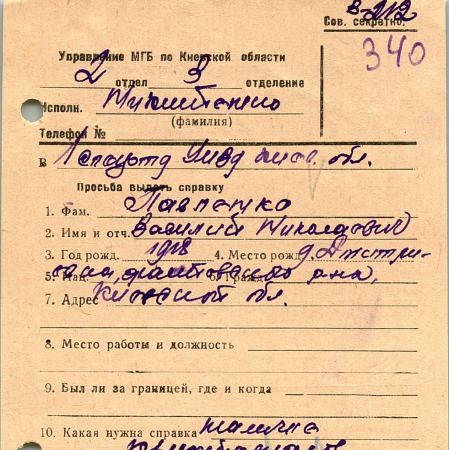 В-212
Сов. секретно.
340
Управление МГБ по Киевской области
2 отдел 3 отделение
Исполн.
(фамилия)
Телефон №
В 1 спецотд УМВД Киев. обл.
Просьба выдать справку
1. Фам. Павленко
2. Имя и отч. Василий Николаевич
3. Год рожд. 1918 4. Место рожд. д. Дмитри-
5. Нац. 6. Гражд. р-на,
7. Адрес Киевской обл.
8. Место работы и должность
9. Был ли за границей, где и когда
10. Какая нужна справка